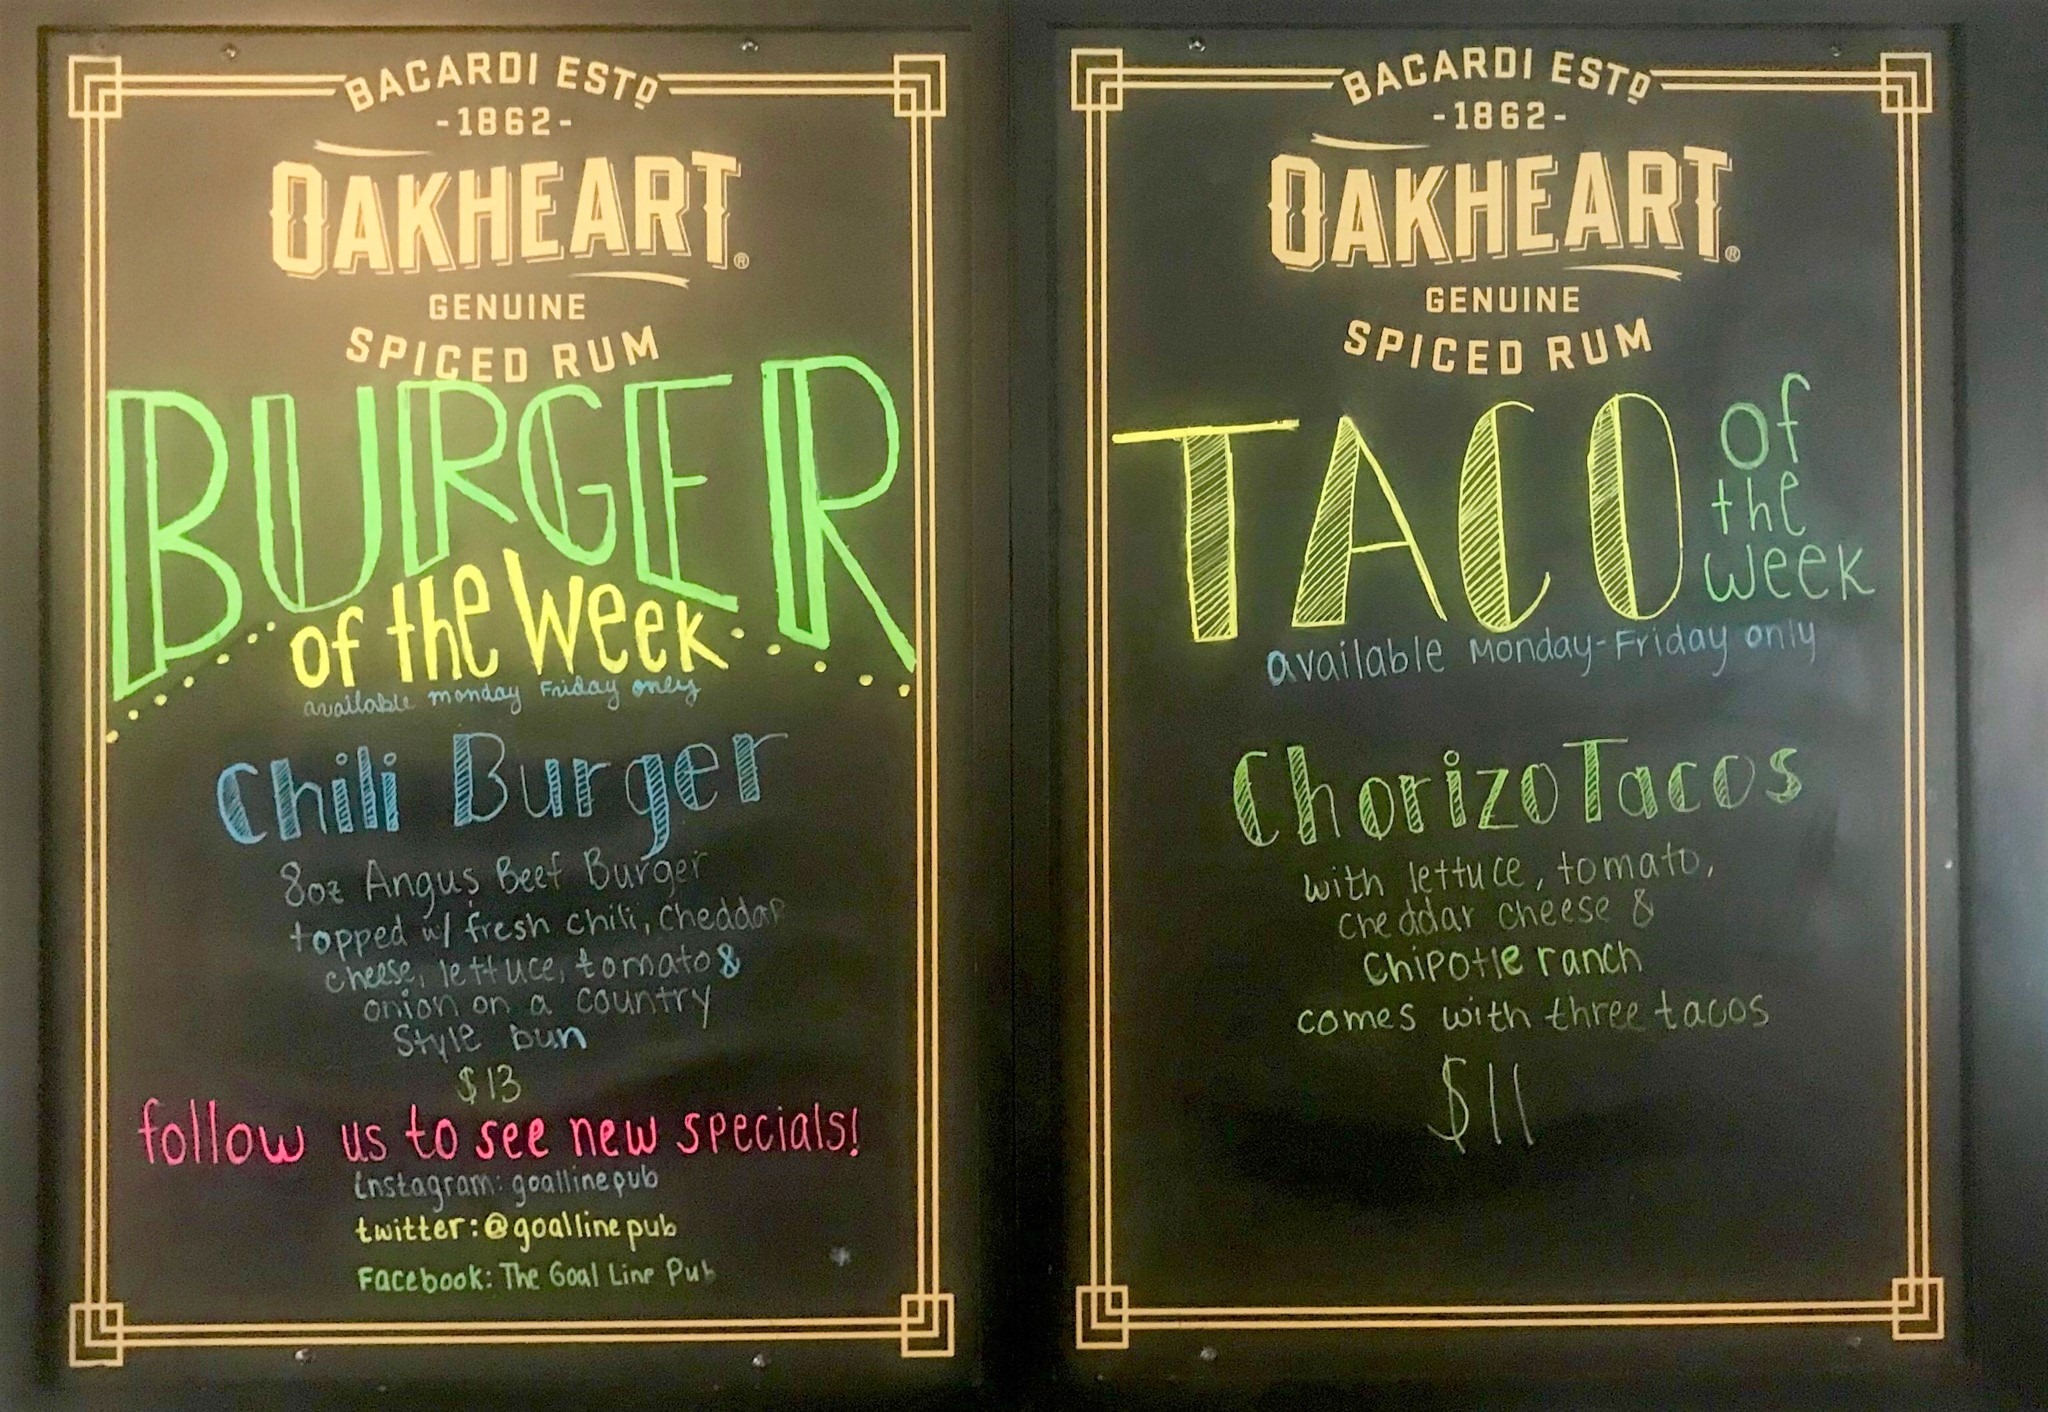 BACARDI ESTD
-1862-
OAKHEART®
GENUINE
SPICED RUM
BURGER
of the Week
available monday Friday only
Chili Burger
8oz Angus Beef Burger
topped w/ fresh chili, Cheddar
cheese, lettuce, tomato &
onion on a country
Style bun
$13
follow us to see new specials!
instagram: goallinepub
twitter: @goallinepub
Facebook: The Goal Line Pub
BACARDI ESTD
-1862-
OAKHEART®
GENUINE
SPICED RUM
TACO
of
the
week
available Monday-Friday only
Chorizo Tacos
with lettuce, tomato,
cheddar cheese &
Chipotle ranch
comes with three tacos
$11